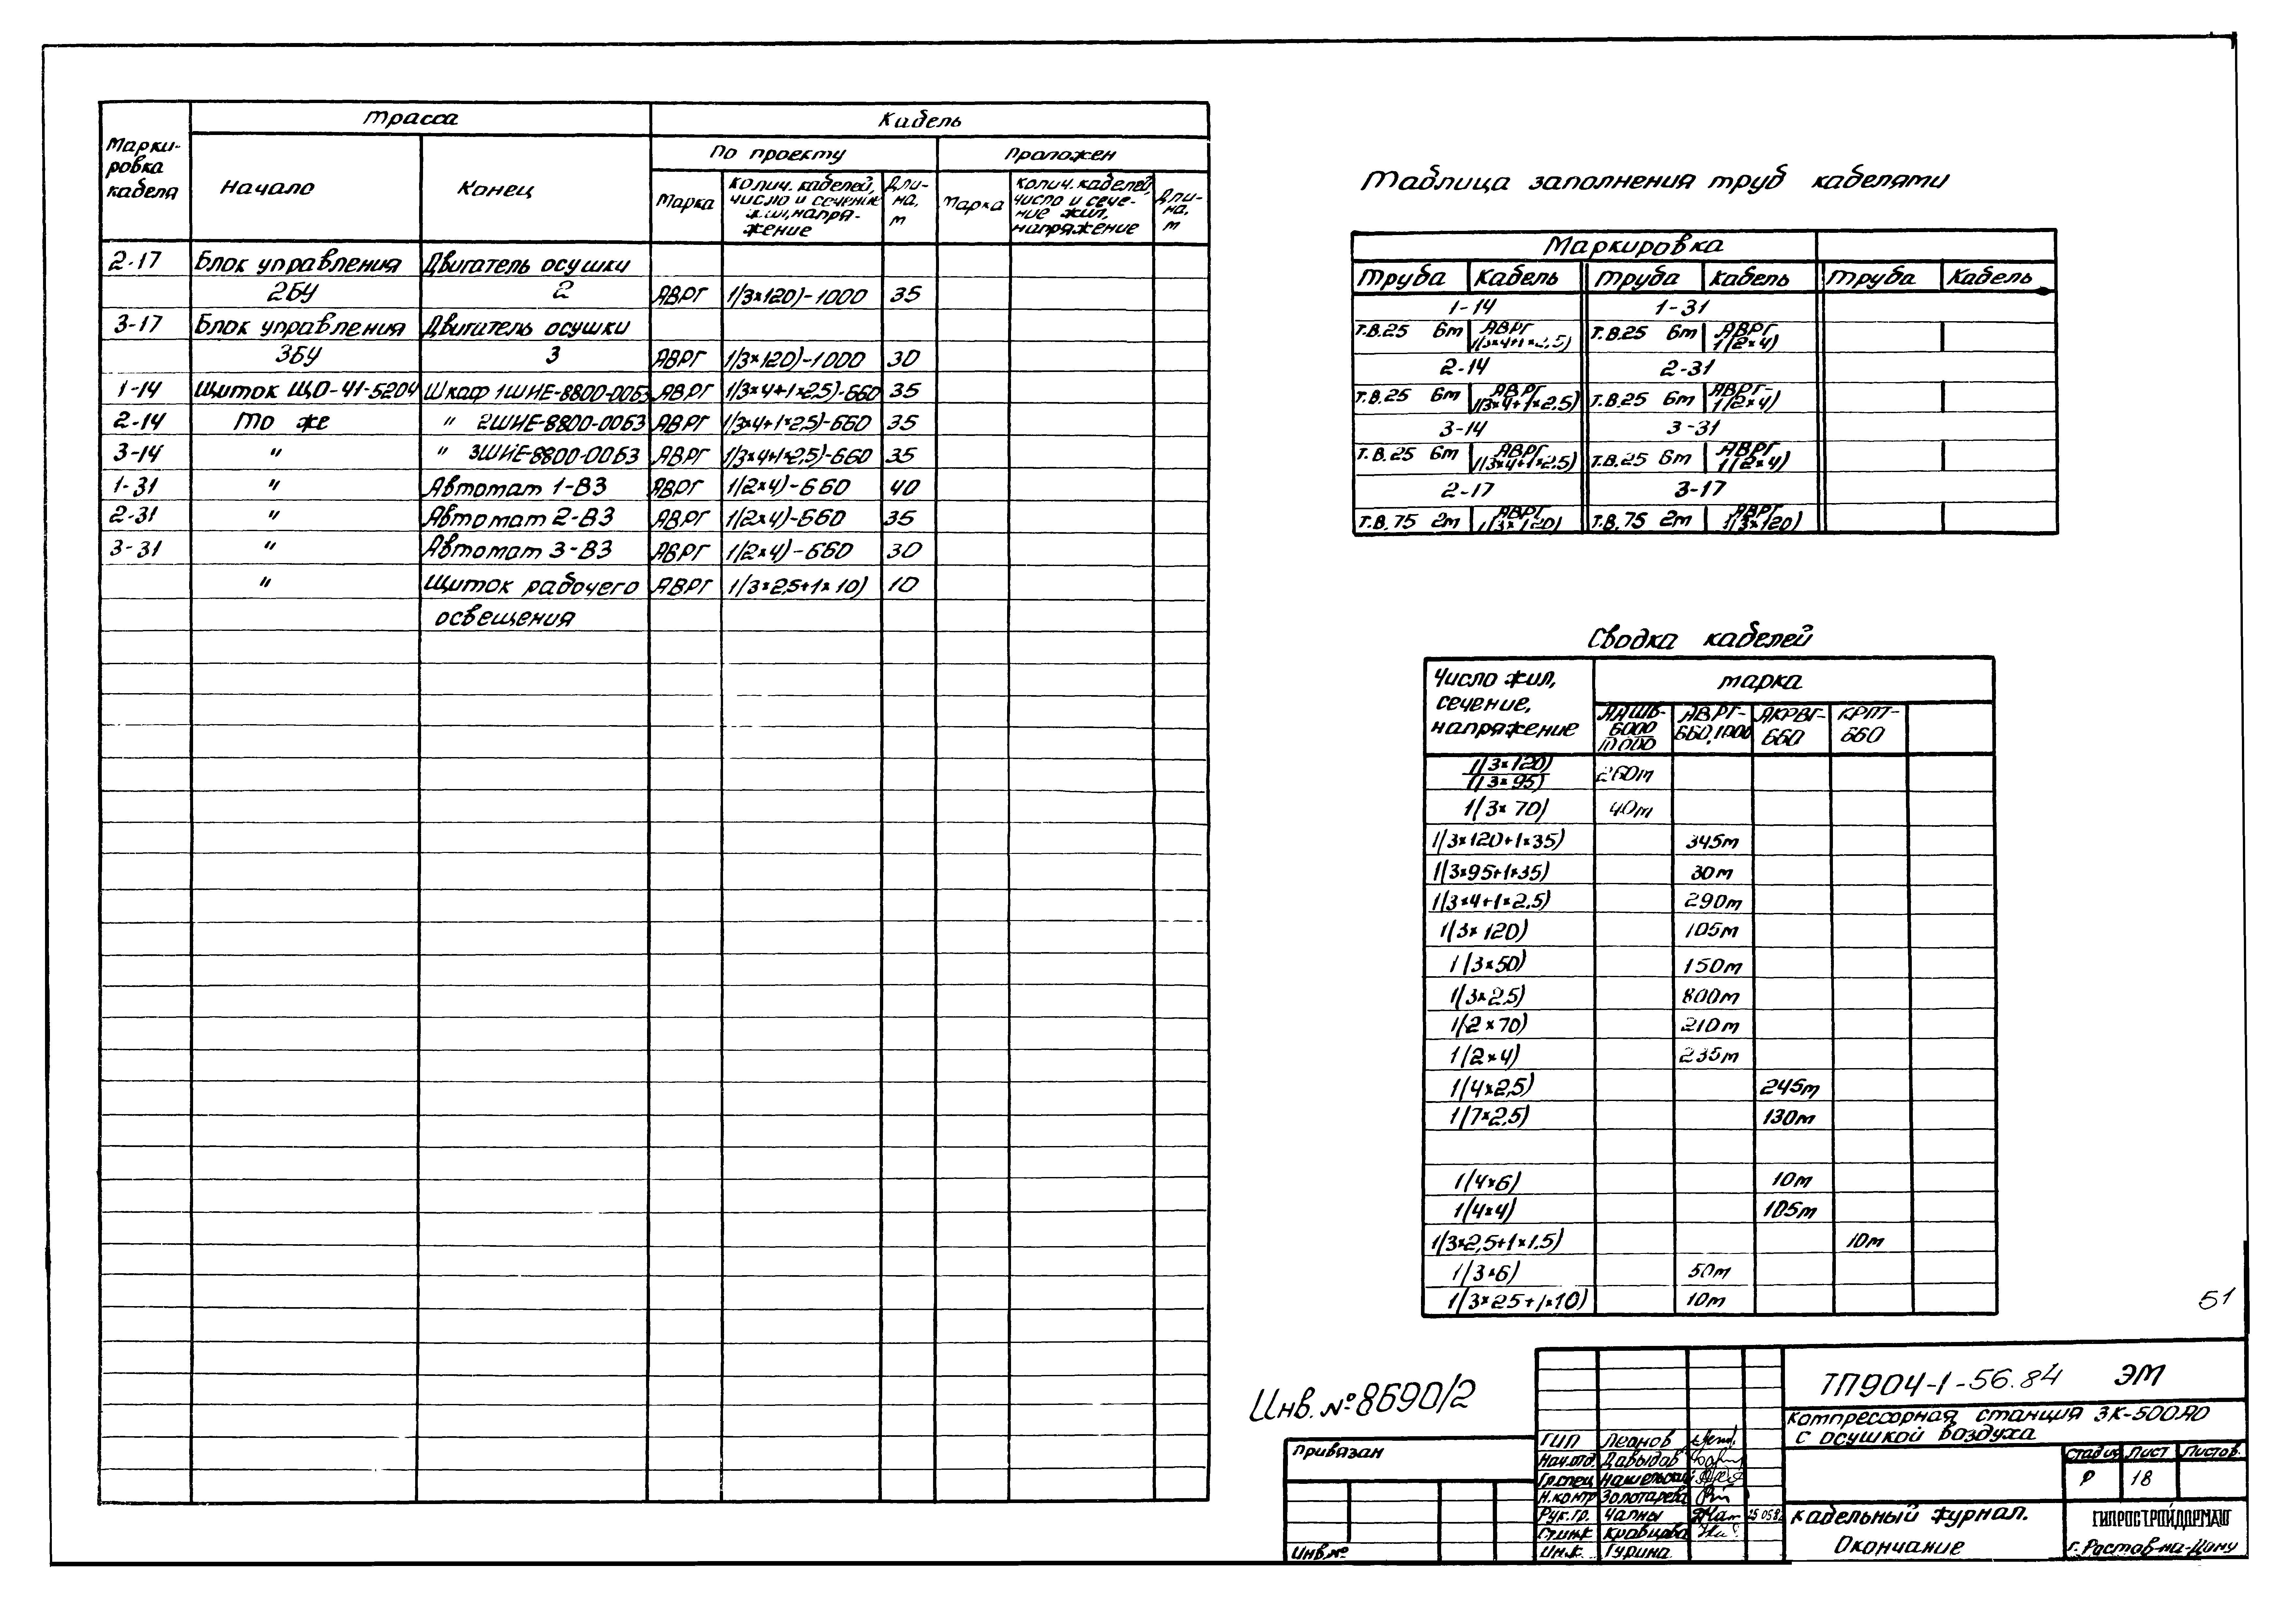 Марки-
ровка
кабеля
Трасса
Кабель
Начало
Конец
По проекту
Проложен
Марка
Колич. кабелей,
число и сечение
жил, напря-
жение
Дли-
на,
м
Марка
Колич. кабелей,
число и сече-
ние жил,
напряжение
Дли-
на,
м
2-17 Блок управления Двигатель осушки
2БУ 2 АВРГ 1(3×120)-1000 35
3-17 Блок управления Двигатель осушки
3БУ 3 АВРГ 1(3×120)-1000 30
1-14 Щиток ЩО-41-5204 Шкаф 1ШИЕ-8800-00БЗ АВРГ 1(3×4+1×2,5)-660 35
2-14 То же " 2ШИЕ-8800-00БЗ АВРГ 1(3×4+1×2,5)-660 35
3-14 " " 3ШИЕ-8800-00БЗ АВРГ 1(3×4+1×2,5)-660 35
1-31 " Автомат 1-ВЗ АВРГ 1(2×4)-660 40
2-31 " Автомат 2-ВЗ АВРГ 1(2×4)-660 35
3-31 " Автомат 3-ВЗ АВРГ 1(2×4)-660 30
" Щиток рабочего АВРГ 1(3×25+1×10) 10
освещения
Таблица заполнения труб кабелями
Маркировка
Труба Кабель Труба Кабель Труба Кабель
1-14 1-31
Т.В.25 6м АВРГ 1(3×4+1×2,5) Т.В.25 6м АВРГ 1(2×4)
2-14 2-31
Т.В.25 6м АВРГ 1(3×4+1×2,5) Т.В.25 6м АВРГ- 1(2×4)
3-14 3-31
Т.В.25 6м АВРГ 1(3×4+1×2,5) Т.В.25 6м АВРГ 1(2×4)
2-17 3-17
Т.В.75 2м АВРГ 1(3×120) Т.В.75 2м АВРГ 1(3×120)
Сводка кабелей
Число жил,
сечение,
напряжение
марка
ААШВ-
6000
10000
АВРГ-
660,1000
АКРВГ-
660
КРПТ-
660
1(3×120)
1(3×95) 260м
1(3×70) 40м
1(3×120+1×35) 345м
1(3×95+1×35) 30м
1(3×4+1×2,5) 290м
1(3×120) 105м
1(3×50) 150м
1(3×2,5) 800м
1(2×70) 210м
1(2×4) 235м
1(4×2,5) 245м
1(7×2,5) 130м
1(4×6) 10м
1(4×4) 105м
1(3×2,5+1×1.5) 10м
1(3×6) 50м
1(3×25+1×10) 10м
51
Инв.№8690/2
Привязан
Инв.№
ГИП Леонов
Нач.отд. Давыдов
Гл.спец
Н.контр Золотарева
Рук.гр. Чапны
Ст.инж Кравцова
Инж. Гурина
ТП904-1-56.84 ЭМ
Компрессорная станция 3К-500АО
с осушкой воздуха
Стадия Лист Листов
Р 18
Кабельный журнал.
Окончание
ГИПРОСТРОЙДОРМАШ
г. Ростов-на-Дону